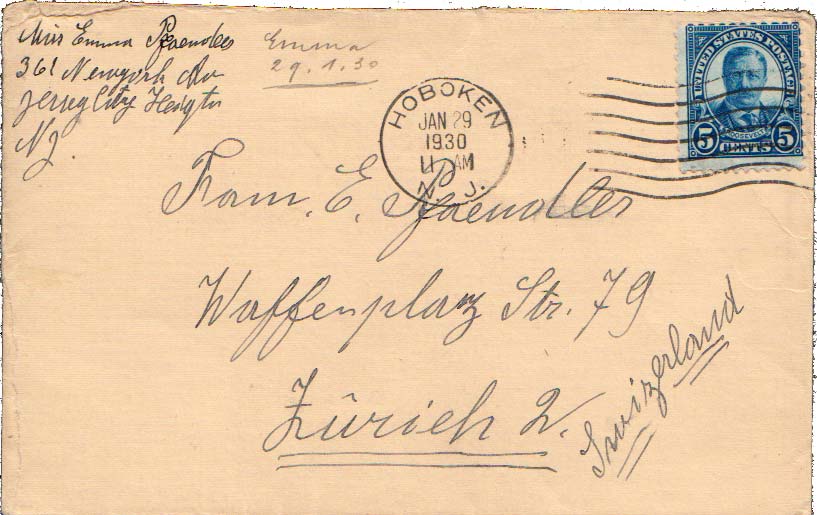 Miss Emma Pfaendler
361 Newyork Av
Jersey City Heights
NJ
Emma
29.1.30
HOBOKEN
JAN 29
1930
11 AM
N. J.
UNITED STATES POSTAGE
ROOSEVELT
5 CENTS 5
Fam. E. Pfaendler
Waffenplatz Str. 79
Zürich 2.
Swizerland